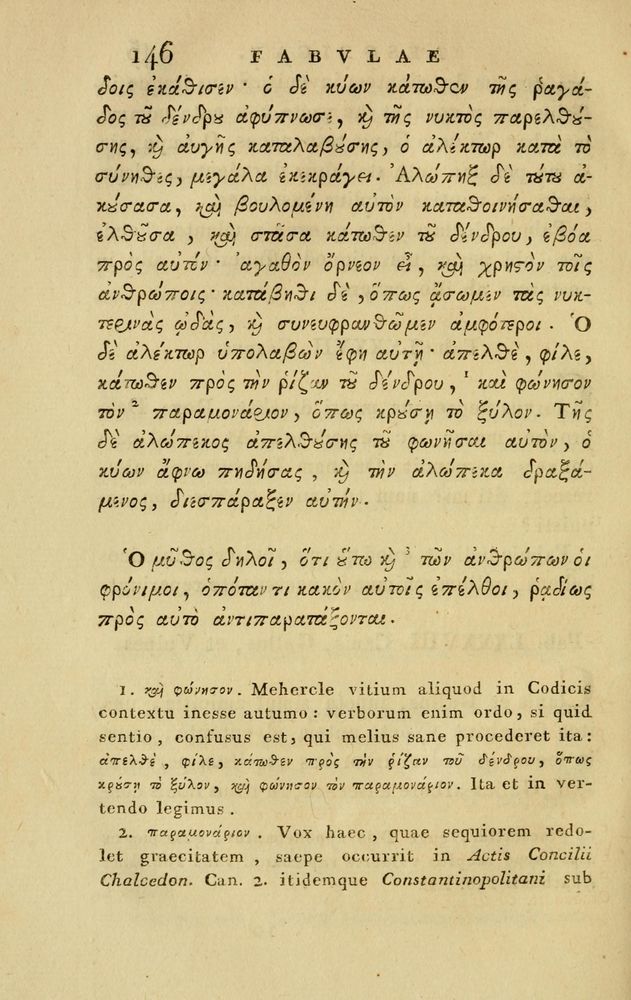 146 FABVLAE
δοις ἐκάθισεν· ὁ δὲ κύων κάτωθεν τῆς ῥαγά-
δος τȣ͂ δένδρȣ ἀφύπνωσε, ϗ τῆς νυκτὸς παρελθȣ́-
σης, ϗ αυγῆς καταλαβȣ́σης, ὁ ἀλέκτωρ κατὰ τὸ
σύνηθες, μεγάλα ἐκεκράγει. Ἀλώπηξ δὲ τȣ́τȣ ἀ-
κȣ́σασα, καὶ βουλομένη αυτὸν καταθοινήσαθαι,
ἐλθȣ͂σα, καὶ στᾶσα κάτωθεν τȣ͂ δένδρου, ἐβόα
πρὸς αυτόν· ἀγαθὸν ὄρνεον εἶ, καὶ χρηστὸν τοῖς
ἀνθρώποις· κατάβηθι δὲ, ὅπως ᾄσωμεν τὰς νυκ-
τερινὰς ᾠδὰς, ϗ συνευφρανθῶμεν ἀμφότεροι. Ὁ
δὲ ἀλέκτωρ ὑπολαβὼν ἔφη αυτῇ· ἀπελθὲ, φίλε,
κάτωθεν πρὸς τὴν ῥίζαν τȣ͂ δένδρου, ¹ καὶ φώνησον
τὸν ² παραμονάριον, ὅπως κρȣ́σῃ τὸ ξύλον. Τῆς
δὲ ἀλώπεκος ἀπελθȣ́σης τȣ͂ φωνῆσαι αυτὸν, ὁ
κύων ἄφνω πηδήσας, ϗ τὴν ἀλώπεκα δραξά-
μενος, διεσπάραξεν αυτήν.
Ὁ μῦθος δηλοῖ, ὅτι ȣ́τω ϗ ³ τῶν ἀνθρώπων οἱ
φρόνιμοι, ὁπόταν τι κακὸν αυτοῖς ἐπέλθοι, ῥαδίως
πρὸς αυτὸ ἀντιπαρατάξονται.
1. καὶ φώνησον. Mehercle vitium aliquod in Codicis
contextu inesse autumo: verborum enim ordo, si quid
sentio, confusus est, qui melius sane procederet ita:
ἀπελθὲ, φίλε, κάτωθεν πρὸς τὴν ῥίζαν τοῦ δένδρου, ὅπως
κρȣ́σῃ τὸ ξύλον, καὶ φώνησον τὸν παραμονάριον. Ita et in ver-
tendo legimus.
2. παραμονάριον. Vox haec, quae sequiorem redo-
let graecitatem, saepe occurrit in Actis Concilii
Chalcedon. Can. 2. itidemque Constantinopolitani sub